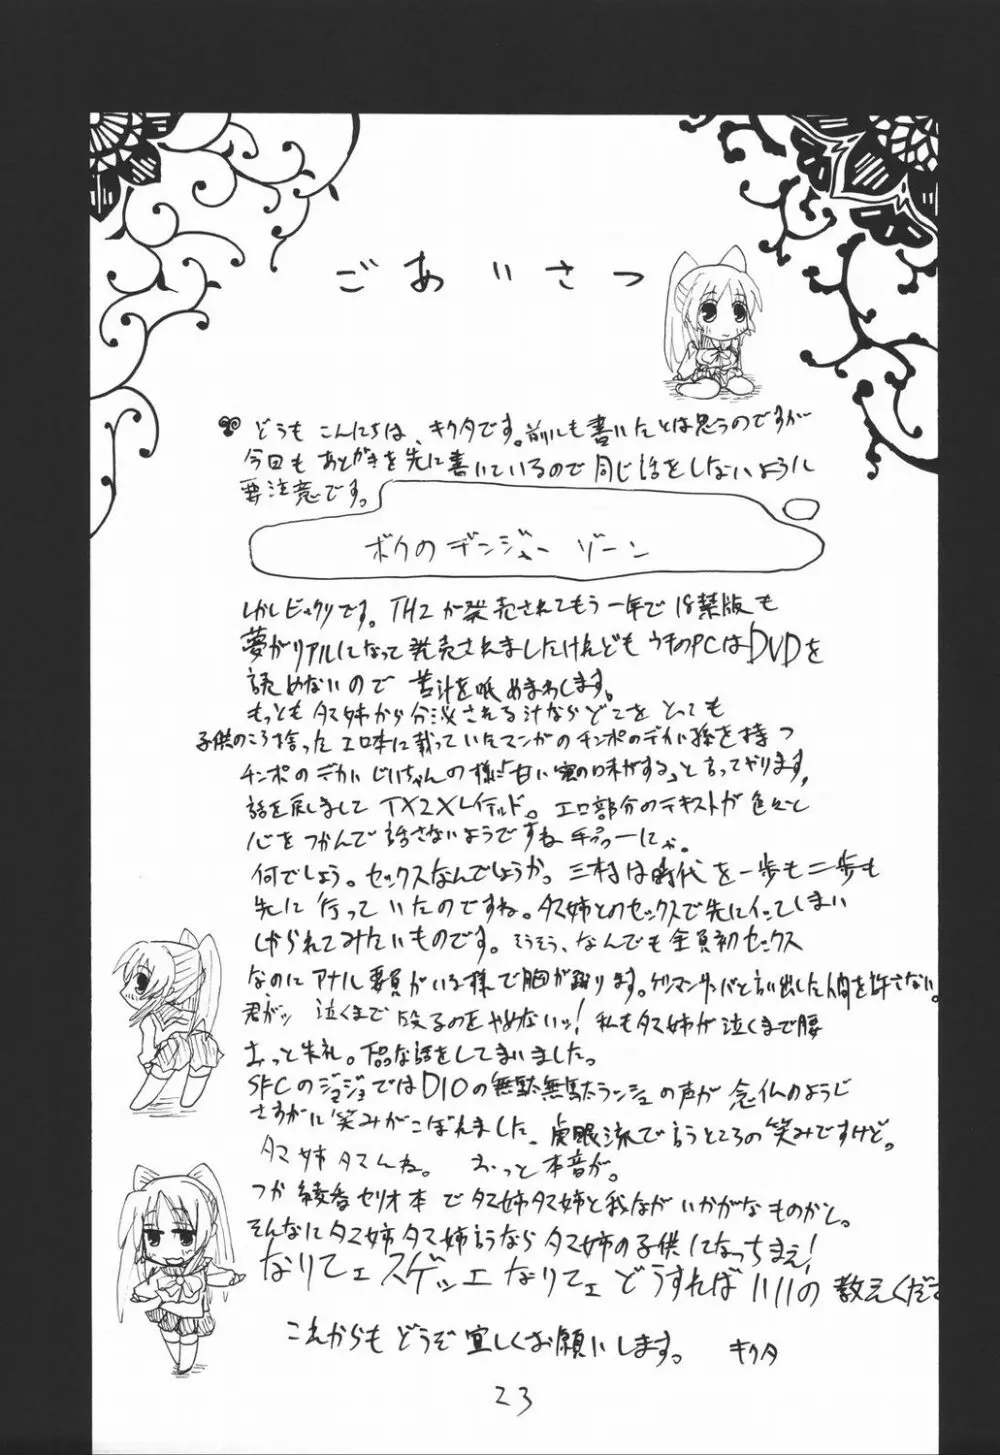 ごあいさつ
どうも こんにちは、キクタです。前にも書いたとは思うのですが
今回も あとがきを先に書いているので同じ話をしないように
要注意です。
ボクのデンジャーゾーン
しかしビックリです。TH2が発売されてもう一年で18禁版も
夢がリアルになって発売されましたけれども うちのPCはDVDを
読めないので 苦汁を舐めまわします。
もっともタマ姉から分泌される汁ならどこをとっても
子供のころ拾ったエロ本に載っていたマンガのチンポのデカい孫を持つ
チンポのデカいじいちゃんの様に「甘い蜜の味がする」と言ってやります。
話を戻しまして TX2Xレイテルド。エロ部分のテキストが色々と
心をつかんで話さないようですね
何でしょう。セックスなんでしょうか。三村は時代を一歩も二歩も
先に行っていたのですね。タマ姉とのセックスで先にイッてしまい
しかられてみたいものです。そうそう、なんでも全員初セックス
なのにアナル要員がいる様で胸が踊ります。ゲリマンサンバと言い出した人間を許さない。
君がッ 泣くまで殴るのをやめないッ！私もタマ姉が泣くまで腰
おっと失礼。下品な話をしてしまいました。
SFCのジョジョではDIOの無駄無駄ラッシュの声が 念仏のようじ
さすがに笑みがこぼれました。虎眼流で言うところの笑みですけど。
タマ姉タマんね。 おっと本音が。
つか綾香セリオ本でタマ姉タマ姉と我ながいかがなものかと。
そんなにタマ姉タマ姉言うならタマ姉の子供になっちまえ！
なりてェスゲッエなりてェ どうすればいいの 教えくださ
これからもどうぞ宜しくお願いします。 キクタ
23